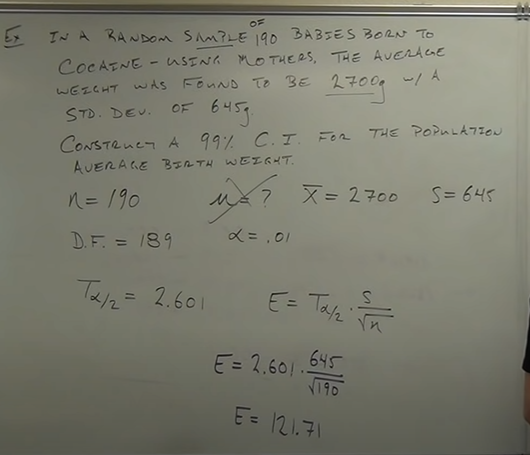 Ex IN A RANDOM SAMPLE OF 190 BABIES BORN TO
COCAINE-USING MOTHERS, THE AVERAGE
WEIGHT WAS FOUND TO BE 2700g w/ A
STD. DEV. OF 645g.
CONSTRUCT A 99% C.I. FOR THE POPULATION
AVERAGE BIRTH WEIGHT.
n = 190 μ = ? x̄ = 2700 S = 645
D.F. = 189 α = .01
Tα/2 = 2.601 E = Tα/2 · S/√n
E = 2.601 · 645/√190
E = 121.71